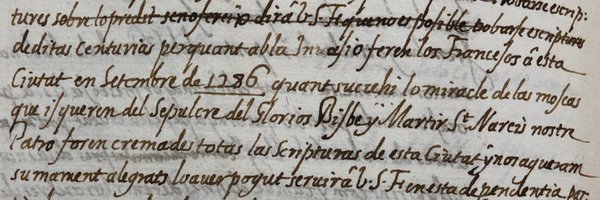 tures sobre lo predit se nos ferei[...] dirà V. S. Fe que no es posible trobarse escriptures
de ditas Centurias perquant ab la Invasio feren los Francesos à esta
Ciutat en Setembre de 1286 quant succehi lo miracle de las moscas
que isqueren del Sepulcre del Glorios Bisbe y Martir St. Narcis nostre
Patro foren cremades totas las Scripturas de esta Ciutat y nos agueram
sumament alegrats lo aver pogut servir à V. S. Fe en esta dependentia per